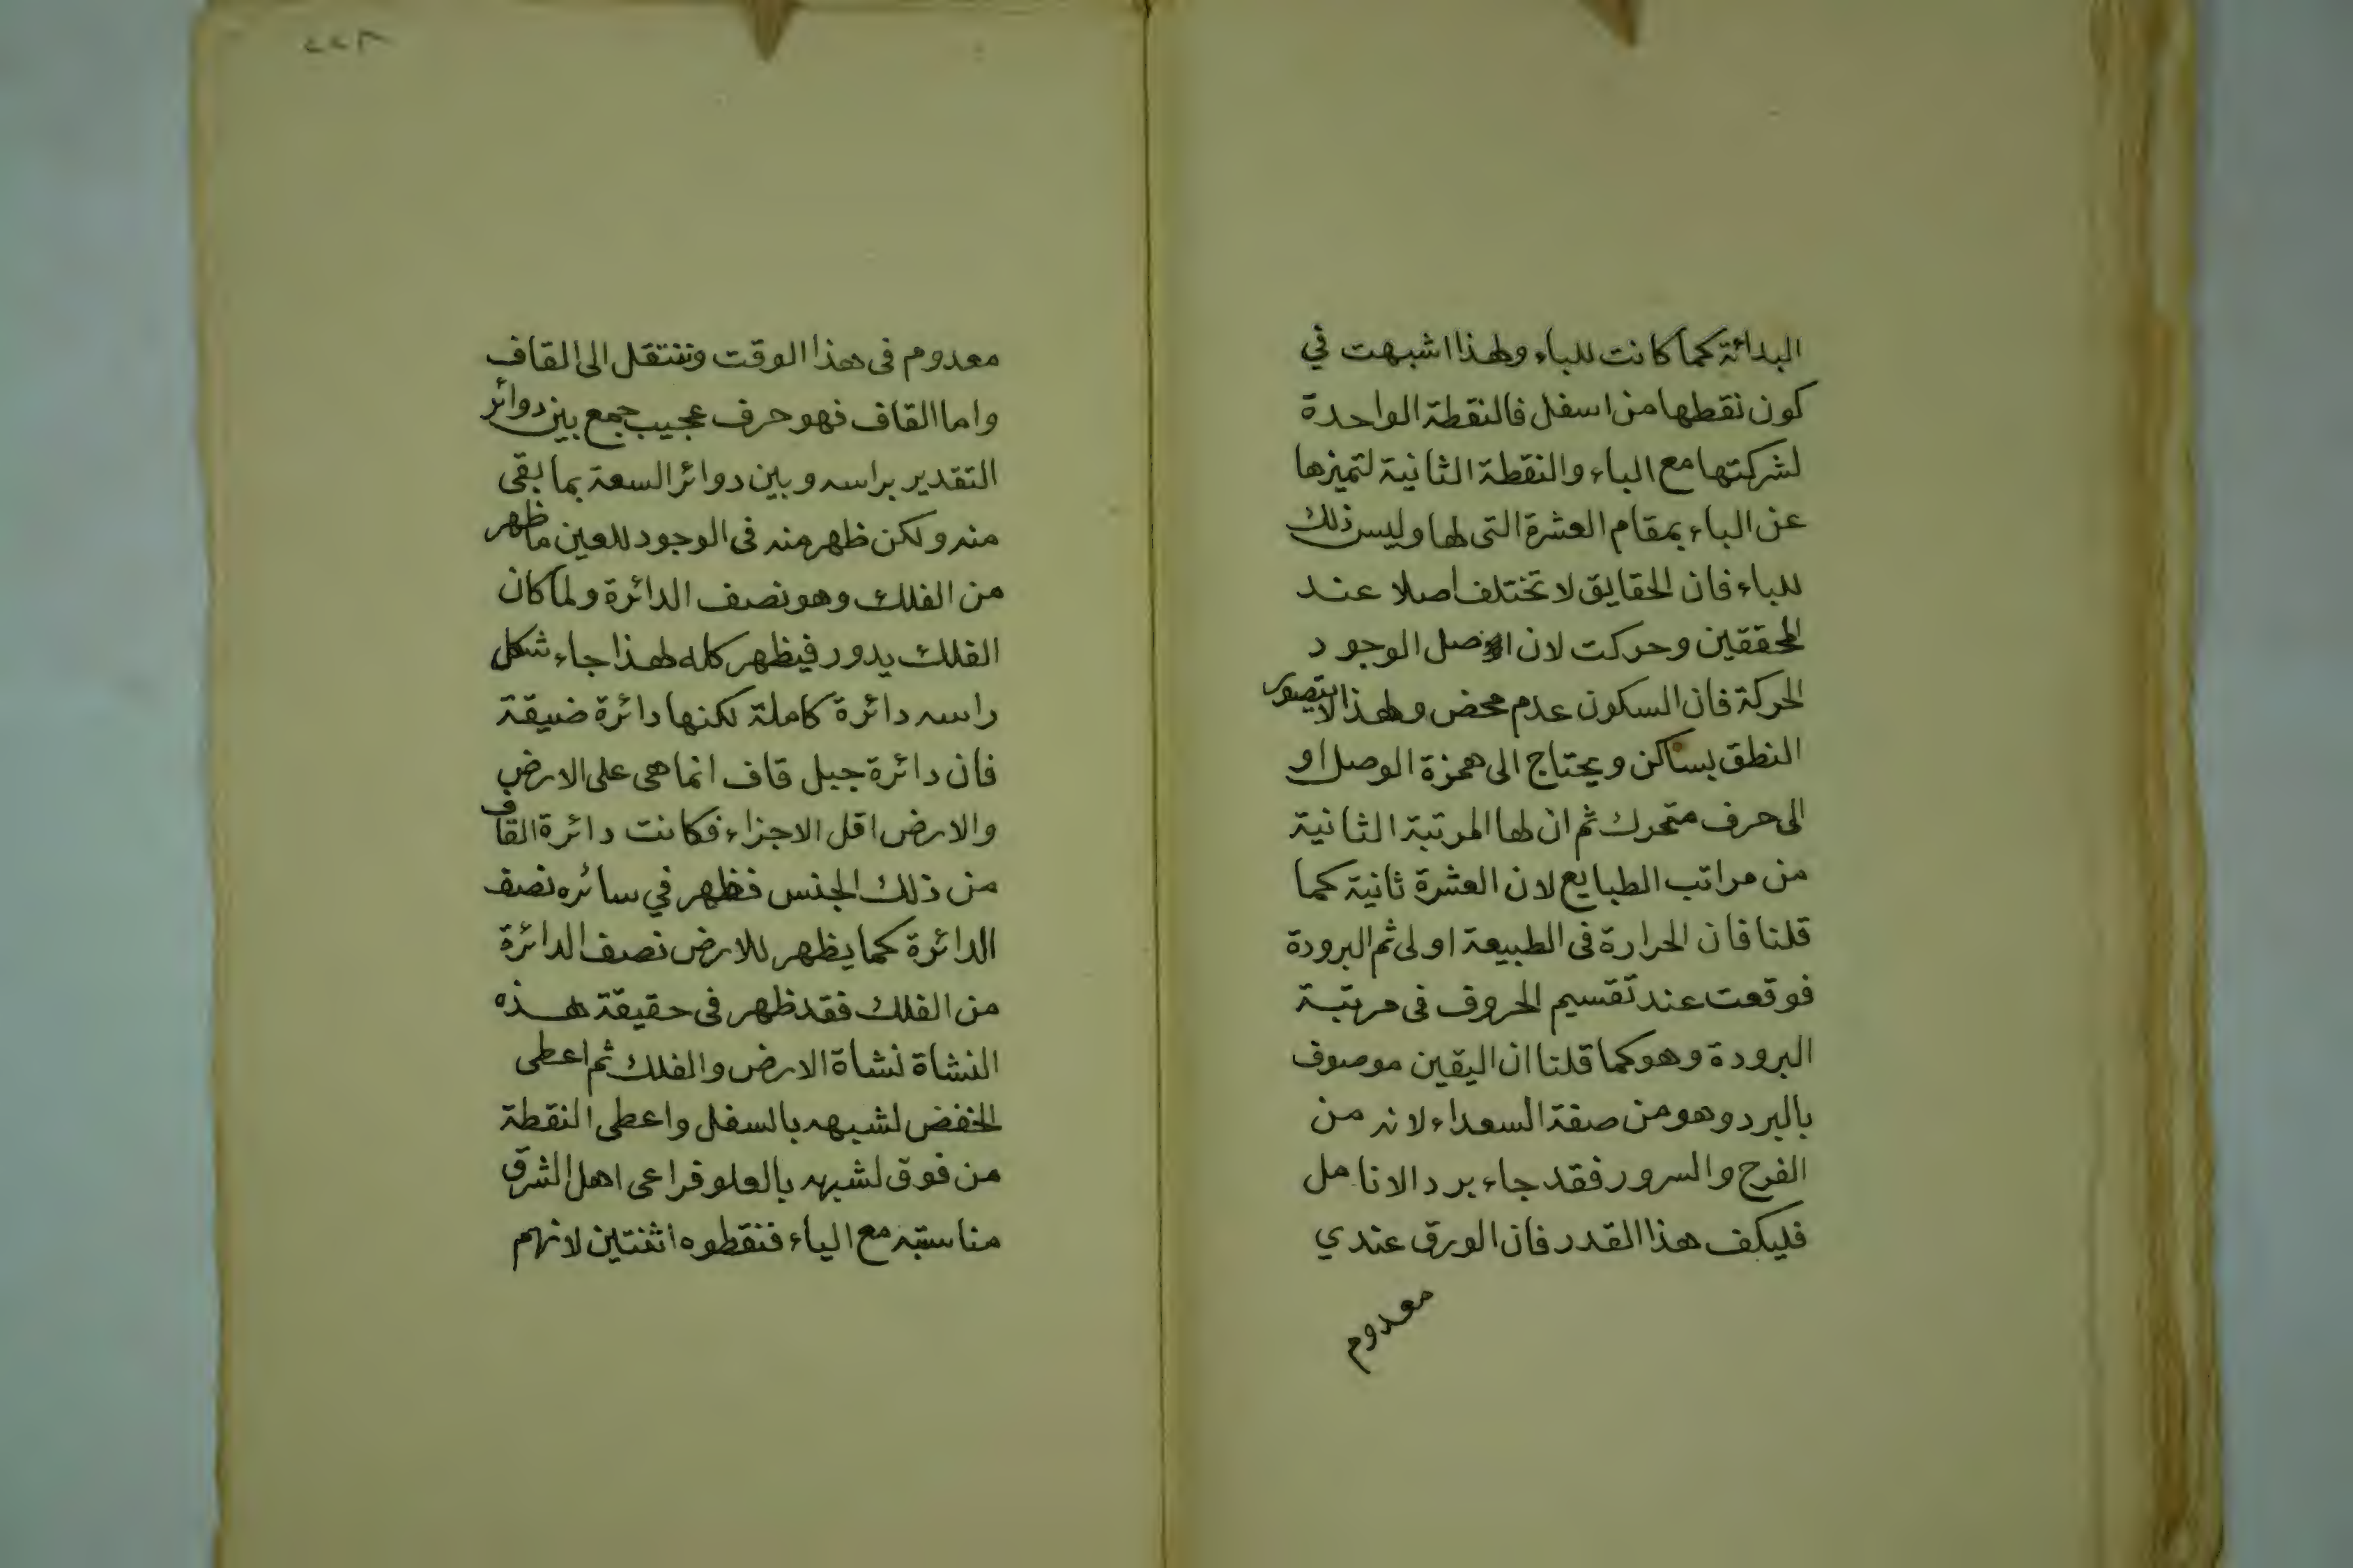 البدائة كما كانت للباء ولهذا اشبهت في
كون نقطها من اسفل فالنقطة الواحدة
لشركتها مع الباء والنقطة الثانية لتميزها
عن الباء بمقام العشرة التى لها وليس ذلك
للباء فان الحقايق لا تختلف اصلا عند
المحققين وحركت لان اصل الوجود
الحركة فان السكون عدم محض ولهذا لا يتصور
النطق بساكن ويحتاج الى همزة الوصل او
الى حرف متحرك ثم ان لها المرتبة الثانية
من مراتب الطبايع لان العشرة ثانية كما
قلنا فان الحرارة فى الطبيعة اولى ثم البرودة
فوقعت عند تقسيم الحروف فى مرتبة
البرودة وهو كما قلنا ان اليقين موصوف
بالبرد وهو من صفة السعداء لانه من
الفرح والسرور فقد جاء برد الانامل
فليكف هذا القدر فان الورق عندي
معدوم
٢٢٨
معدوم فى هذا الوقت وننتقل الى القاف
واما القاف فهو حرف عجيب جمع بين دوائر
التقدير براسه وبين دوائر السعة بما بقى
منه ولكن ظهر منه فى الوجود للعين ما ظهر
من الفلك وهو نصف الدائرة ولما كان
الفلك يدور فيظهر كله لهذا جاء شكل
راسه دائرة كاملة لكنها دائرة ضيقة
فان دائرة جبل قاف انما هى على الارض
والارض اقل الاجزاء فكانت دائرة القاف
من ذلك الجنس فظهر في سائره نصف
الدائرة كما يظهر للارض نصف الدائرة
من الفلك فقد ظهر فى حقيقة هذه
النشاة نشاة الارض والفلك ثم اعطى
الخفض لشبهه بالسفل واعطى النقطة
من فوق لشبهه بالعلو فراعى اهل الشرق
مناسبته مع الياء فنقطوه اثنتين لانهم